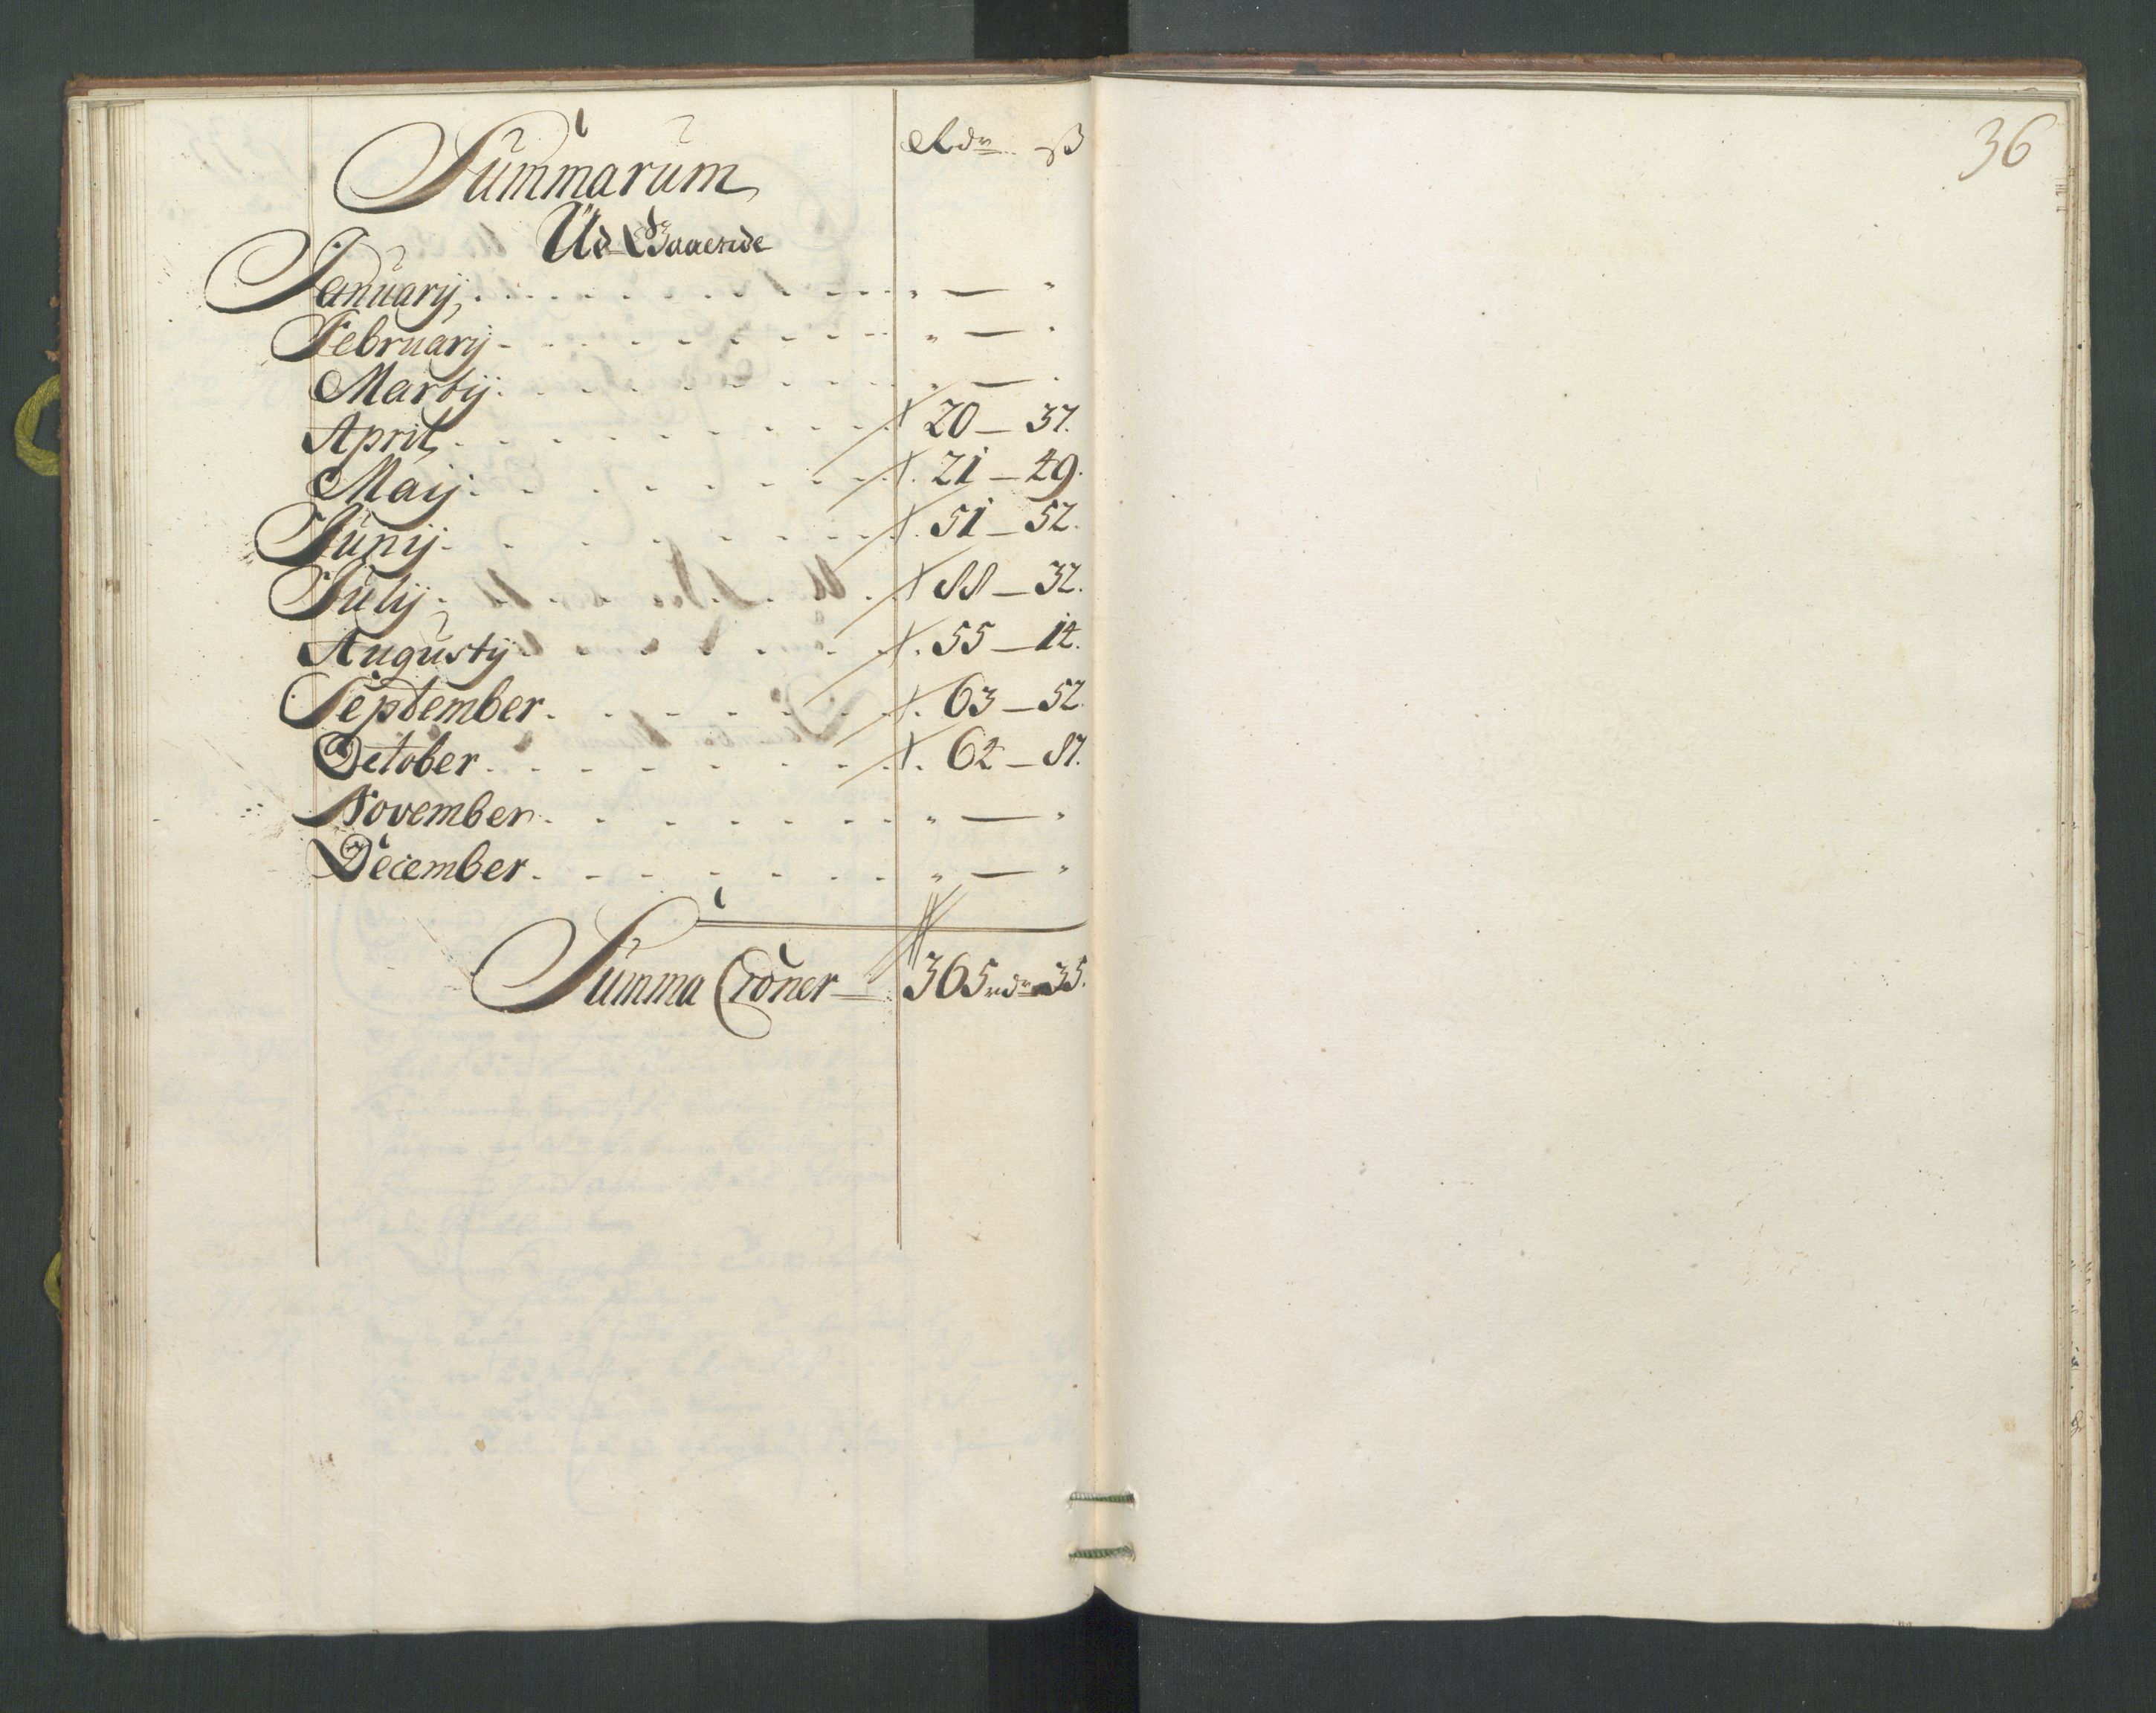 Summarum Rdr ß
Ud Gaaende
January . . . . . . . . . . " — "
February - . . . . . . . . " — "
Martij . . . . . . . . . " — "
April . . . . . . . . . 20 — 37.
Maij . . . . . . . . . 21 — 49.
Junij . . . . . . . . . 51 — 52.
Julij . . . . . . . . . 88 — 32.
Augustij . . . . . . . . 55 — 14.
September . . . . . . . . 63 — 52.
October . . . . . . . . 64 — 87.
November . . . . . . . . " — "
December . . . . . . . . " — "
Summa Croner — 365 rdr 35.
36